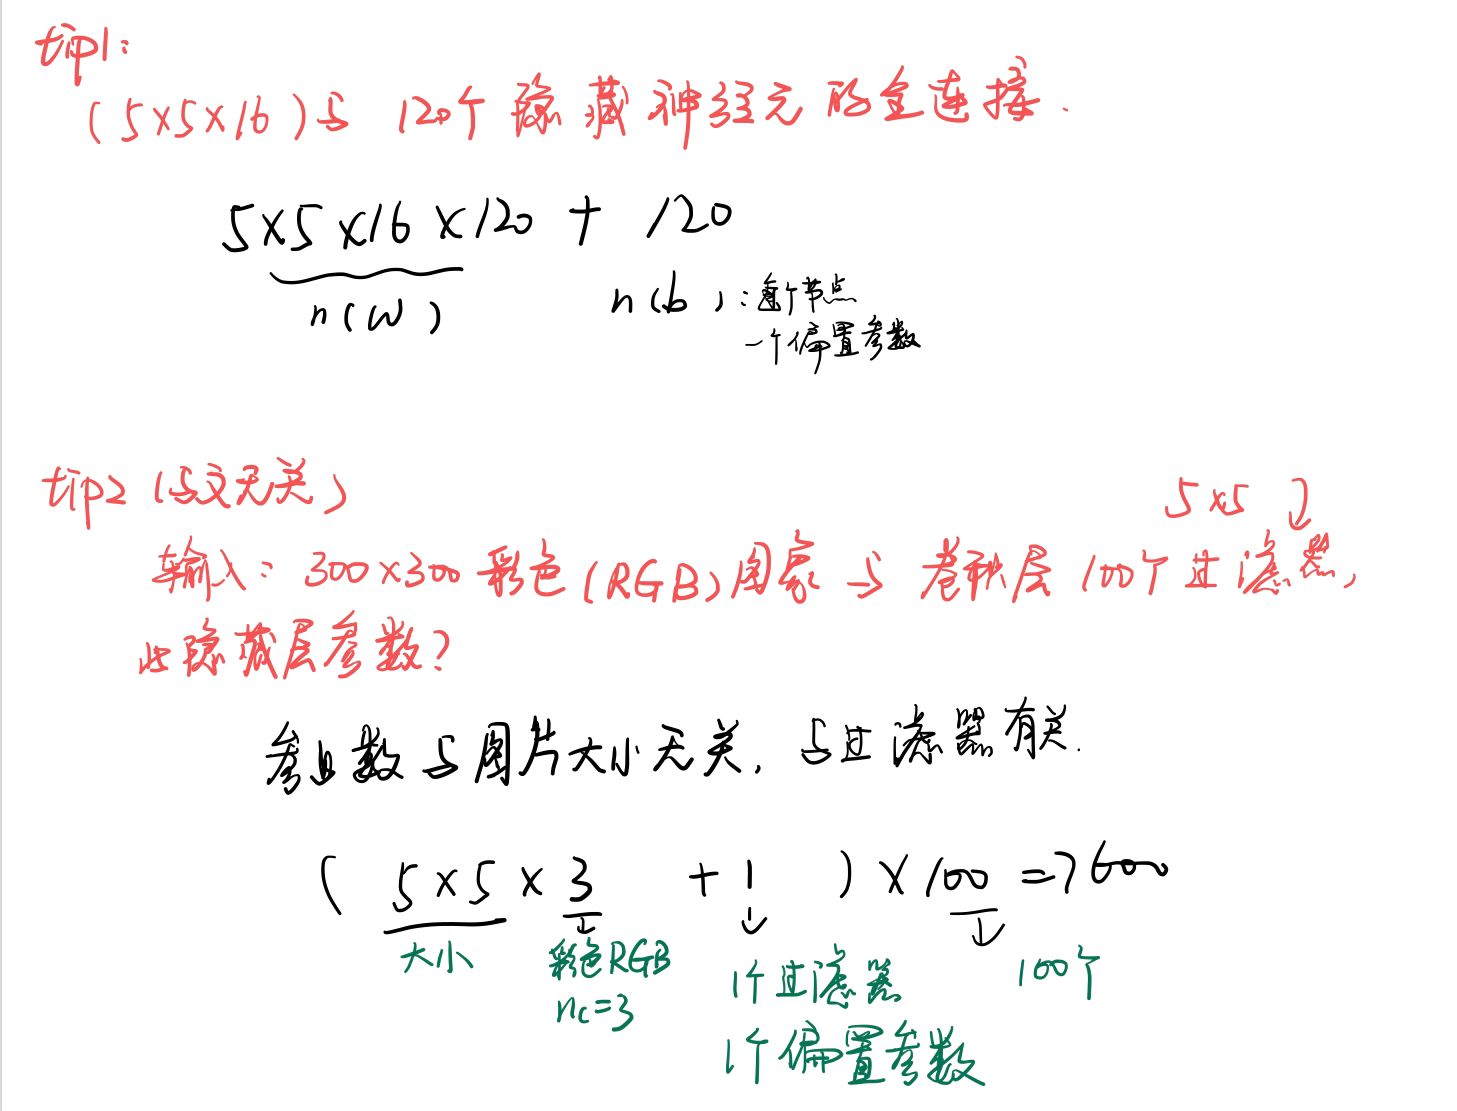 tip1:
(5×5×16)与 120个 隐藏神经元的全连接.
5×5×16×120 + 120
n(w) n(b):每个节点
一个偏置参数
tip2 (与文无关)
5×5
输入: 300×300 彩色(RGB)图象 与 卷积层 100个 过滤器,
此隐藏层参数?
参数与图片大小无关, 与过滤器有关.
( 5×5×3 +1 )×100=7600
大小 彩色RGB 1个过滤器 100个
nc=3
1个偏置参数